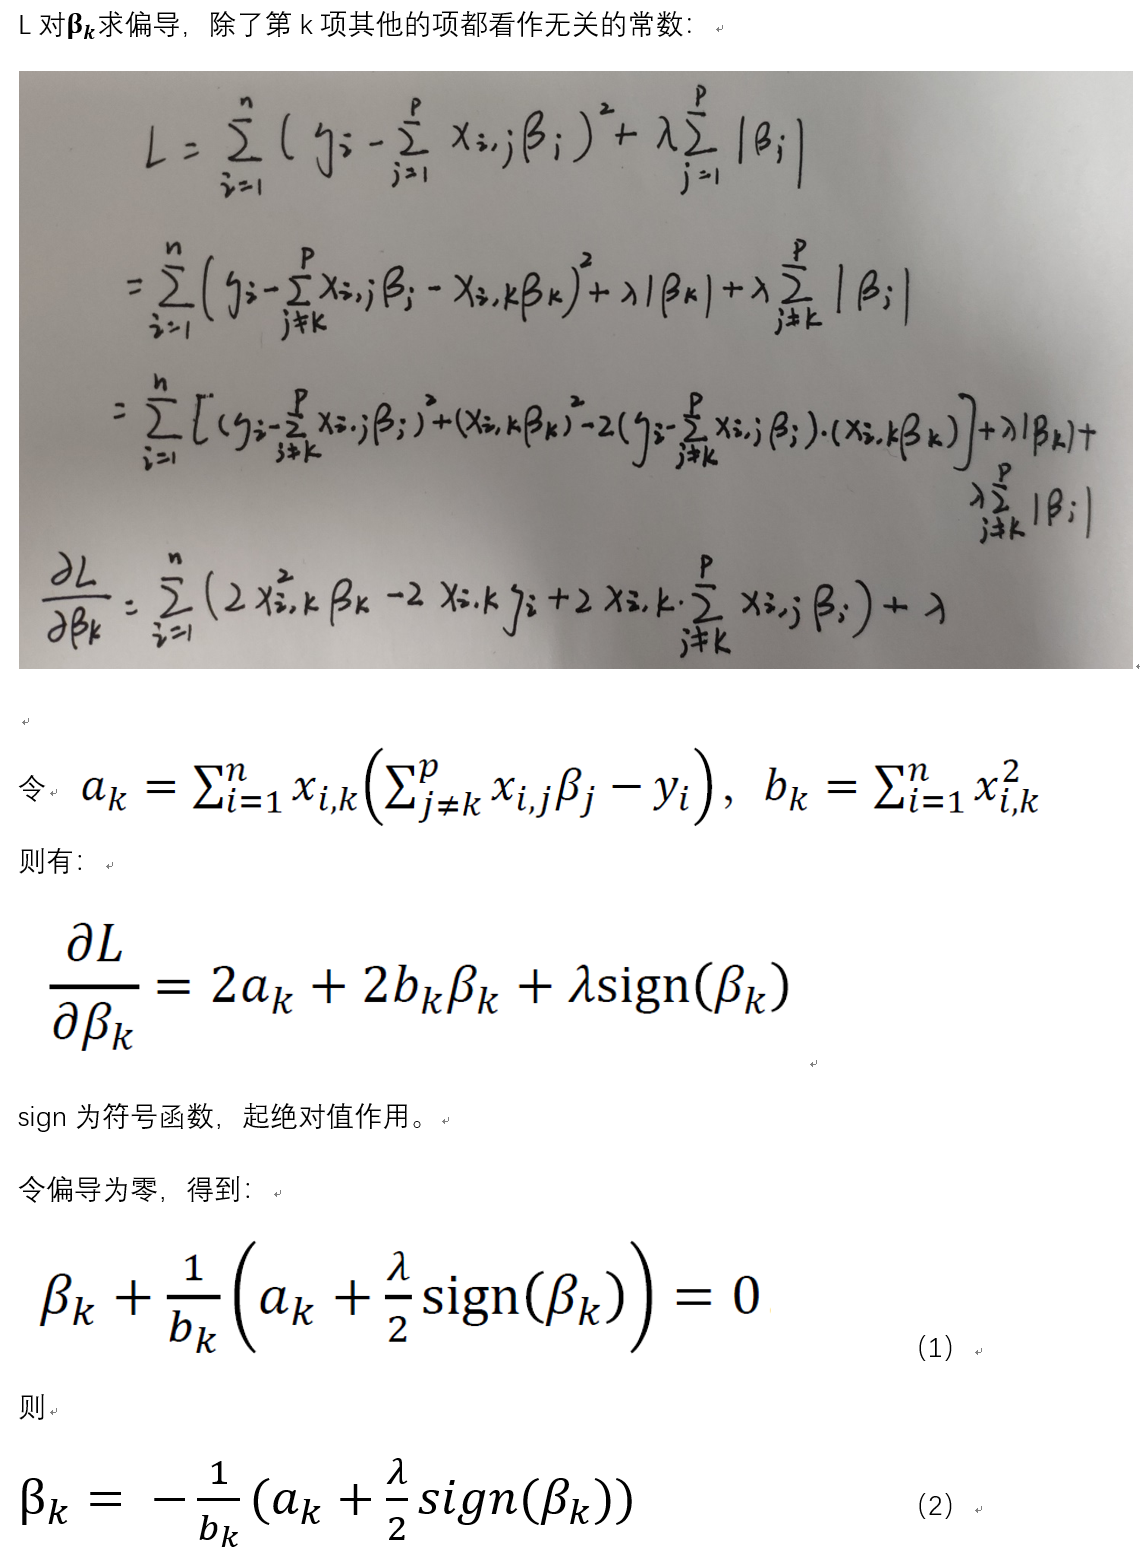 L 对βk求偏导，除了第 k 项其他的项都看作无关的常数：
L = ∑_{i=1}^{n} ( yi - ∑_{j=1}^{p} xi,j βj )² + λ ∑_{j=1}^{p} |βj|
= ∑_{i=1}^{n} ( yi - ∑_{j≠k}^{p} xi,j βj - xi,k βk )² + λ|βk| + λ ∑_{j≠k}^{p} |βj|
= ∑_{i=1}^{n} [ (yi - ∑_{j≠k}^{p} xi,j βj)² + (xi,k βk)² - 2(yi - ∑_{j≠k}^{p} xi,j βj)·(xi,k βk) ] + λ|βk| +
λ ∑_{j≠k}^{p} |βj|
∂L/∂βk = ∑_{i=1}^{n} ( 2 x²i,k βk - 2 xi,k yi + 2 xi,k · ∑_{j≠k}^{p} xi,j βj ) + λ
令 a_k = ∑_{i=1}^{n} x_{i,k} ( ∑_{j≠k}^{p} x_{i,j} β_j − y_i ) , b_k = ∑_{i=1}^{n} x_{i,k}^2
则有：
∂L/∂β_k = 2a_k + 2b_kβ_k + λsign(β_k)
sign 为符号函数，起绝对值作用。
令偏导为零，得到：
β_k + 1/b_k ( a_k + λ/2 sign(β_k) ) = 0 （1）
则
β_k = − 1/b_k (a_k + λ/2 sign(β_k)) （2）